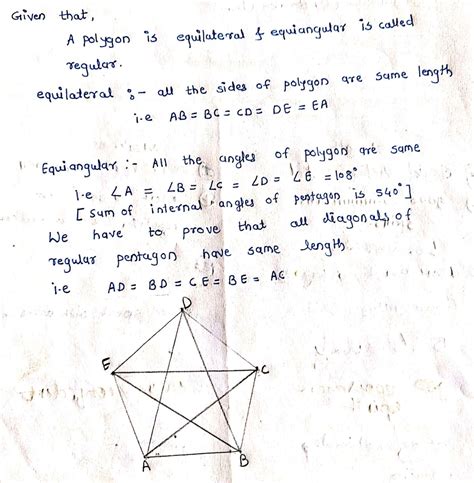 Given that,
A polygon is equilateral & equiangular is called
regular.
equilateral :- all the sides of polygon are same length
i.e AB = BC = CD = DE = EA
Equiangular :- All the angles of polygon are same
i.e ∠A = ∠B = ∠C = ∠D = ∠E = 108°
[Sum of internal angles of pentagon is 540°]
We have to prove that all diagonals of
regular pentagon have same length
i.e AD = BD = CE = BE = AC
D
E
C
A
B